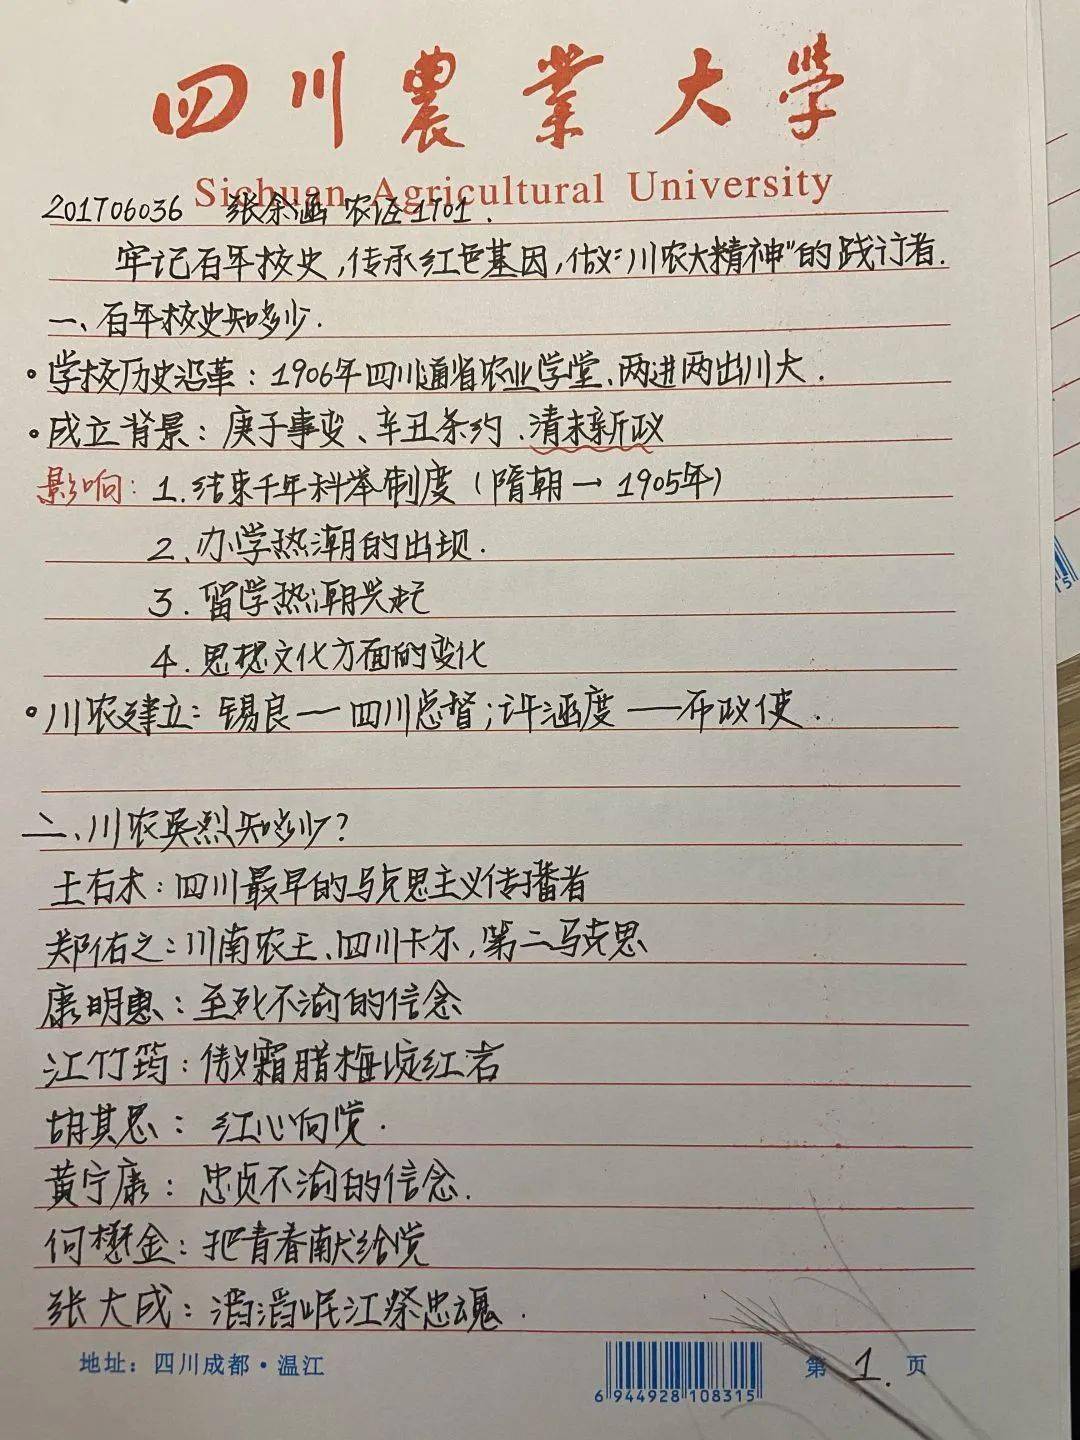 四川農業大學
Sichuan Agricultural University
201706036 张余涵 农区1701.
牢记百年校史,传承红色基因,做“川农大精神”的践行者.
一、百年校史知多少.
学校历史沿革:1906年四川通省农业学堂、两进两出川大.
成立背景:庚子事变、辛丑条约.清末新政
影响:1.结束千年科举制度(隋朝→1905年)
2.办学热潮的出现.
3.留学热潮兴起
4.思想文化方面的变化
川农建立:锡良——四川总督;许涵度——布政使.
二、川农英烈知多少?
王右木:四川最早的马克思主义传播者
郑佑之:川南农王、四川卡尔,第二马克思
康明惠:至死不渝的信念
江竹筠:傲霜腊梅绽红岩
胡其恩:红心向党.
黄宁康:忠贞不渝的信念.
何懋金:把青春献给党
张大成:滔滔岷江祭忠魂.
地址:四川成都·温江
6944928108315
第1.页